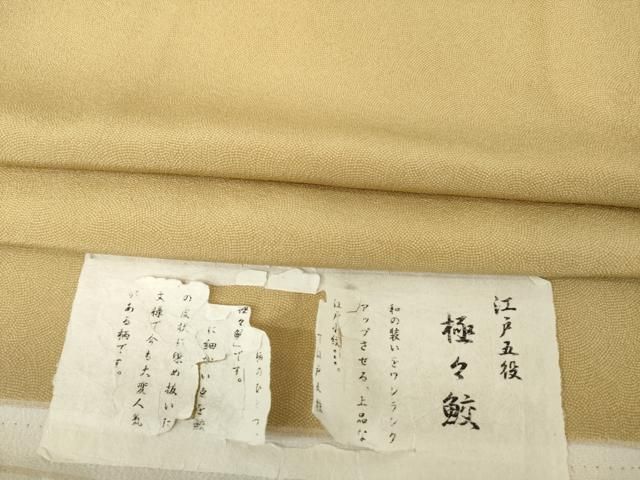 江戸五役
極々鮫
和の装いをワンランク
アップさせる、上品な
江戸小紋・・・。
江戸五役
柄のひとつ、
極々鮫です。
に細かい点を鮫
の皮状に染め抜いた
文様で今も大変人気
がある柄です。